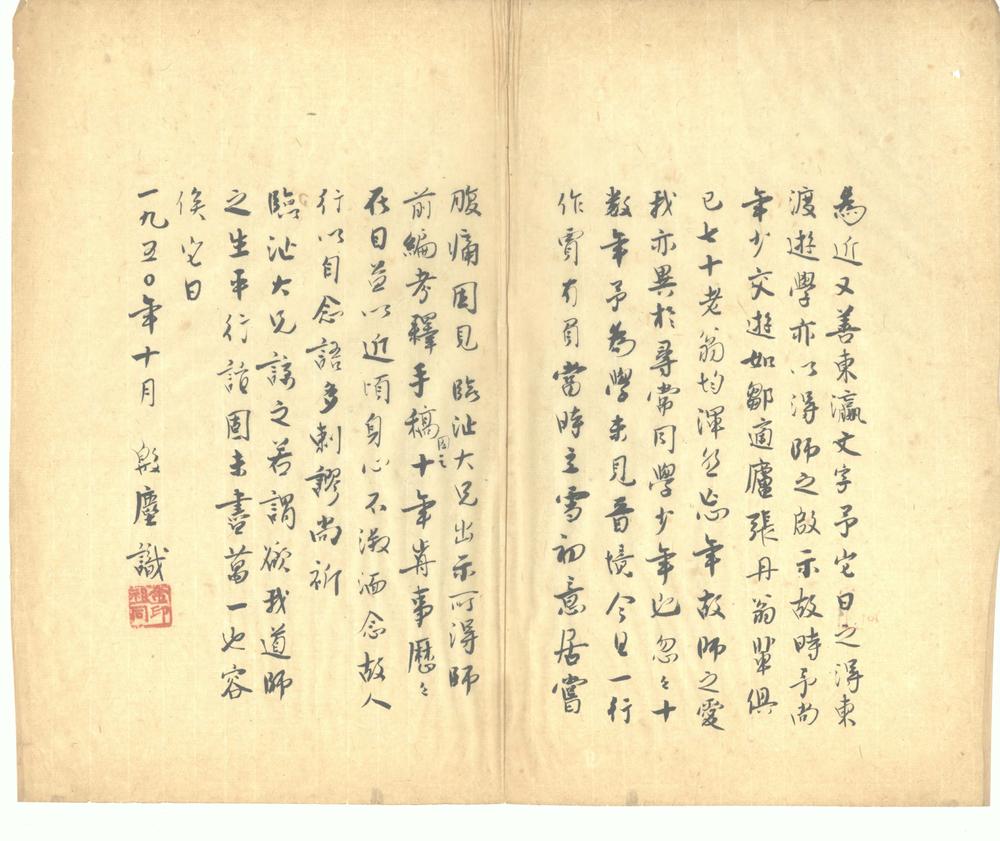 為近又善東瀛文字予它日之得東
渡遊學亦以得師之啟示故時予尚
年少交遊如鄒適廬張丹翁輩俱
已七十老翁均渾忘年故師之愛
我亦異於尋常同學少年也忽々十
數年予為學未見晉境今且一行
作賈有負當時立雪初意居嘗
腹痛因見臨沚大兄出示所得師
前編考釋手稿因之十年前事歷々
在目益以近頃身心不澂洒念故人
行以自念語多剌謬尚祈
臨沚大兄諒之若謂欲我道師
之生平行誼固未盡萬一也容
俟它日
一九五〇年十月 殷塵識
金祖同印